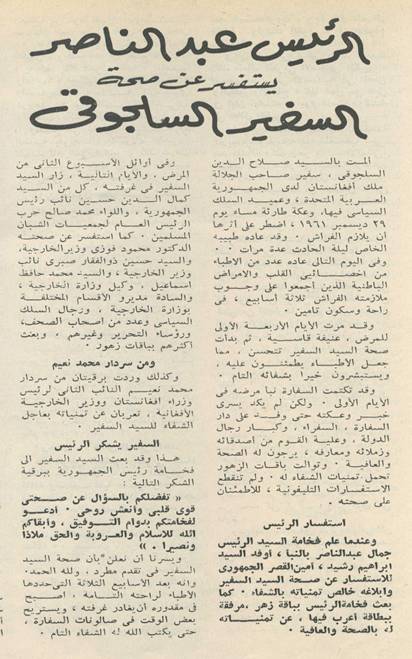 الرئيس عبد الناصر
يستفسر عن صحة
السفير السلجوقى
المت بالسيد صلاح الدين
السلجوقى ، سفير صاحب الجلالة
ملك افغانستان لدى الجمهورية
العربية المتحدة ، وعميد السلك
السياسى فيها ، وعكة طارئة مساء يوم
٢٩ ديسمبر ١٩٦١ ، اضطر على أثرها
أن يلازم الفراش . وقد عاده طبيبه
الخاص ليلة الحادث عدة مرات .
وفى اليوم التالى عاده عدد من الاطباء
من اخصائيى القلب والامراض
الباطنية الذين اجمعوا على وجوب
ملازمته الفراش ثلاثة أسابيع ، فى
راحة وسكون تامين .
وقد مرت الأيام الأربعة الأولى
للمرض ، عنيفة قاسية ، ثم بدأت
صحة السيد السفير تتحسن ، مما
جعل الأطباء يطمئنون عليه ،
ويستبشرون خيرا بشفائه التام .
وقد تكتمت السفارة نبأ مرضه فى
الأيام الأولى . ولكن لم يكد يسرى
خبر وعكته حتى وفد على دار
السفارة ، السفراء ، وكبار رجال
الدولة ، وعلية القوم من أصدقائه
وزملائه ومعارفه ، يرجون له الصحة
والعافية . وتوالت باقات الزهور
تحمل تمنيات الشفاء له . ولم تنقطع
الاستفسارات التليفونية ، للاطمئنان
على صحته .
استفسار الرئيس
وعندما علم فخامة السيد الرئيس
جمال عبدالناصر بالنبأ ، أوفد السيد
ابراهيم رشيد ، أمين القصر الجمهورى
للاستفسار عن صحة السيد السفير
وابلاغه خالص تمنياته بالشفاء . كما
بعث فخامة الرئيس بباقة زهر ، مرفقة
ببطاقة أعرب فيها ، عن تمنياته
له بالصحة والعافية .
وفى أوائل الأسبوع الثانى من
المرض ، والأيام التالية ، زار السيد
السفير فى غرفته ، كل من السيد
كمال الدين حسين نائب رئيس
الجمهورية ، واللواء محمد صالح حرب
الرئيس العام لجمعيات الشبان
المسلمين . كما استفسر عن صحته
الدكتور محمود فوزى وزير الخارجية،
والسيد حسين ذوالفقار صبرى نائب
وزير الخارجية ، والسيد محمد حافظ
اسماعيل ، وكيل وزارة الخارجية ،
والسادة مديرو الاقسام المختلفة
بوزارة الخارجية ، ورجال السلك
السياسى وعدد من أصحاب الصحف،
ورؤساء التحرير وغيرهم . وبعث
أكثرهم بباقات زهور .
ومن سردار محمد نعيم
وكذلك وردت برقيتان من سردار
محمد نعيم النائب الثانى لرئيس
وزراء افغانستان ووزير الخارجية
الأفغانية ، تعربان عن تمنياته بعاجل
الشفاء للسيد السفير .
السفير يشكر الرئيس
هذا وقد بعث السيد السفير الى
فخامة رئيس الجمهورية ببرقية
الشكر التالية :
« تفضلكم بالسؤال عن صحتى
قوى قلبى وأنعش روحى . أدعو
لفخامتكم بدوام التوفيق ، وأبقاكم
الله للاسلام والعروبة والحق ملاذا
ونصيرا . »
ويسرنا أن نعلن بأن صحة السيد
السفير فى تقدم مطرد ، ولله الحمد .
وانه بعد الأسابيع الثلاثة التى حددها
الاطباء لراحته التامة ، أصبح
فى مقدوره أن يغادر غرفته ، ويستريح
بعض الوقت فى صالونات السفارة ،
حتى يكتب الله له الشفاء التام .